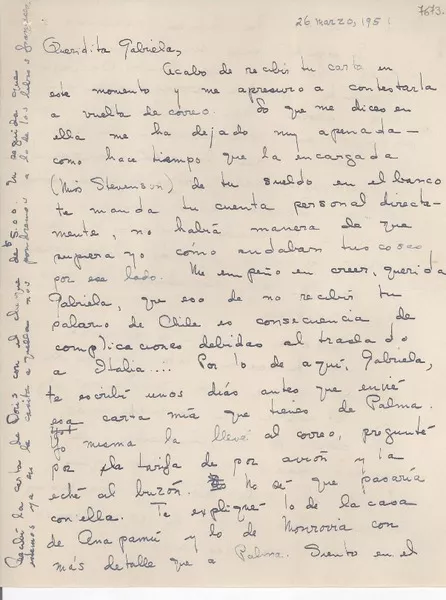 7673.
26 marzo, 195
Queridita Gabriela,
Acabo de recibir tu carta en
este momento y me apresuro a contestarla
a vuelta de correo. Lo que me dices en
ella me ha dejado muy apenada —
como hace tiempo que la encargada
(Miss Stevenson) de tu sueldo en el banco
te manda tu cuenta personal directa-
mente, no habrá manera de que
supiera yo cómo andaban tus cosas
por ese lado. Me empeño en creer, querida
Gabriela, que eso de no recibir tu
salario de Chile es consecuencia de
complicaciones debidas al traslado
a Italia.... Por lo de aquí, Gabriela,
te escribí unos días antes que envié
esa carta mía que tienes de Palma.
Yo misma la llevé al correo, pregunté
por la tarifa de por avión y la
eché al buzón. No sé que pasaría
con ella. Te expliqué lo de la casa
de Anapamú y lo de Monrovia con
más detalle que a Palma. Siento en el
Recibí la carta de Doris con el cheque de $500. En seguida que
estemos ya en la casita aquella nos pondremos a lo de los libros